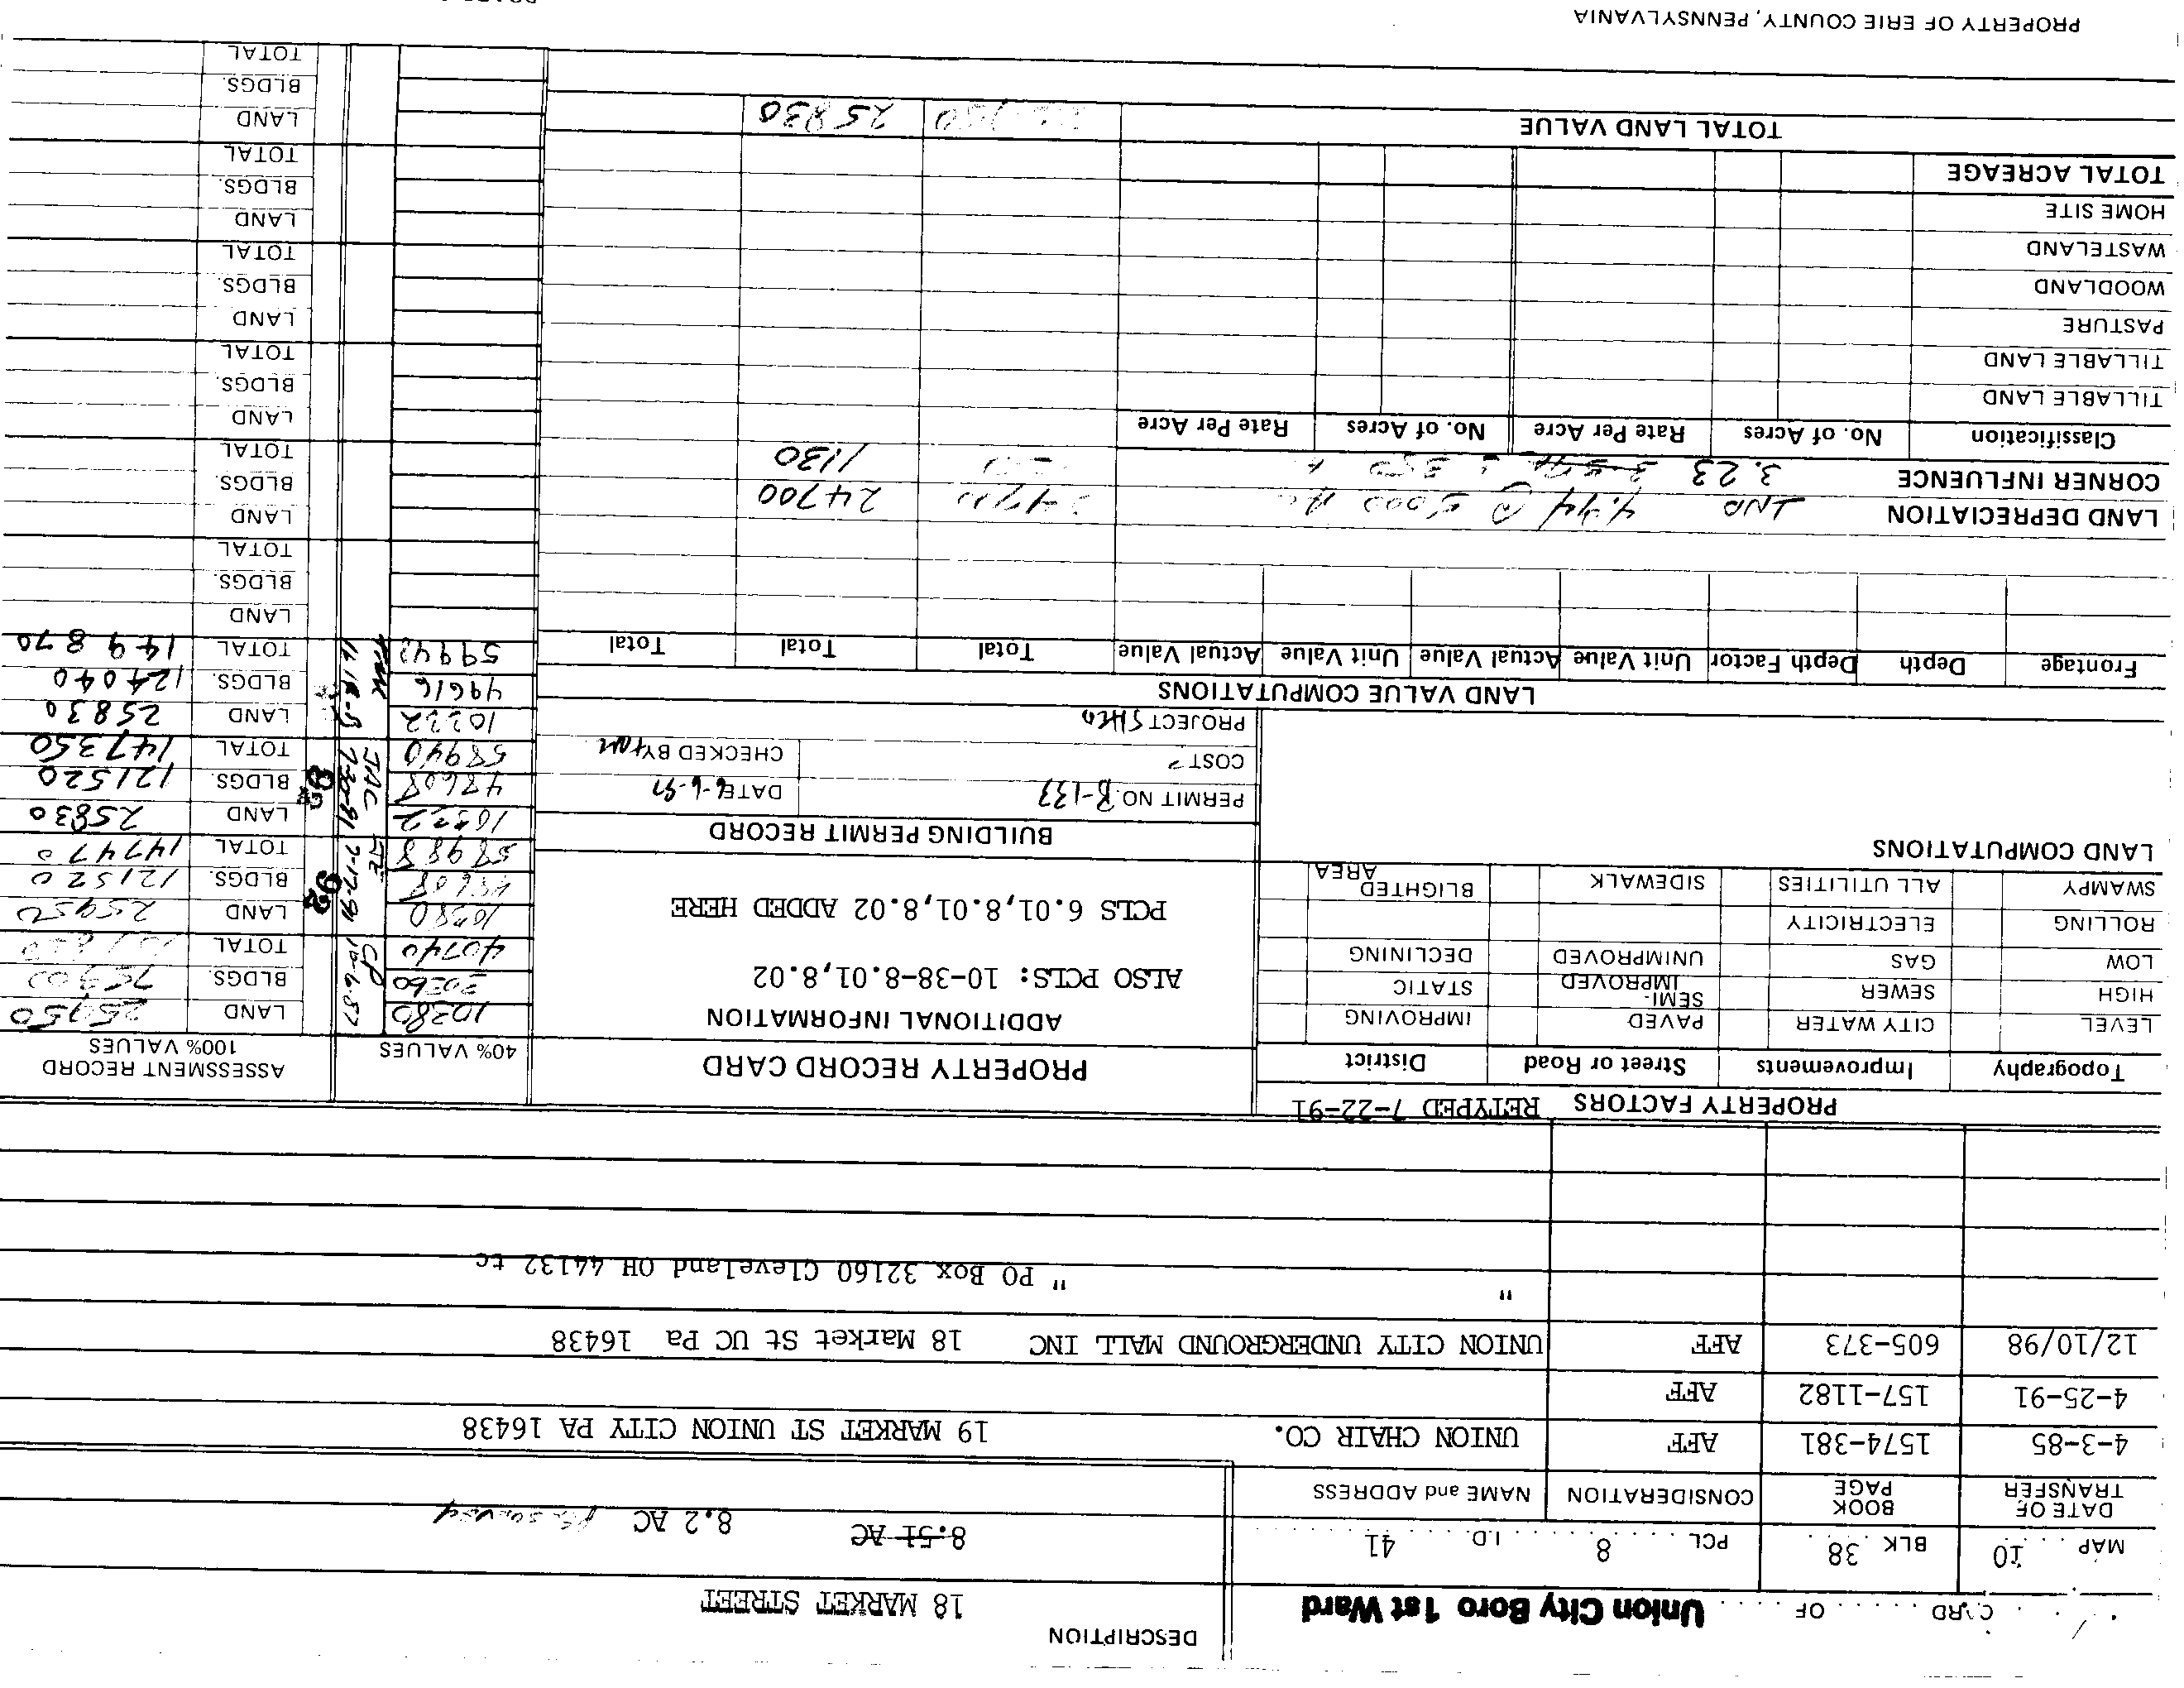 DESCRIPTION
CARD OF Union City Boro 1st Ward 18 MARKET STREET
MAP 10 BLK 38 PCL 8 I.D. 41 8.51 AC 8.2 AC
DATE OF TRANSFER BOOK PAGE CONSIDERATION NAME and ADDRESS
4-3-85 1574-381 AFF UNION CHAIR CO. 19 MARKET ST UNION CITY PA 16438
4-25-91 157-1182 AFF
12/10/98 605-373 AFF UNION CITY UNDERGROUND MALL INC 18 Market St UC Pa 16438
" " PO Box 32160 Cleveland OH 44132 tc
PROPERTY FACTORS RETYPED 7-22-91
Topography Improvements Street or Road District
LEVEL CITY WATER PAVED IMPROVING
HIGH SEWER SEMI-IMPROVED STATIC
LOW GAS UNIMPROVED DECLINING
ROLLING ELECTRICITY
SWAMPY ALL UTILITIES SIDEWALK BLIGHTED AREA
LAND COMPUTATIONS
PROPERTY RECORD CARD
ADDITIONAL INFORMATION
ALSO PCLS: 10-38-8.01,8.02
PCLS 6.01,8.01,8.02 ADDED HERE
BUILDING PERMIT RECORD
PERMIT NO. B-133 DATE 6-6-91
COST ? CHECKED BY
PROJECT SHED
40% VALUES ASSESSMENT RECORD 100% VALUES
10380 LAND 25950
30360 CP 10-6-87 BLDGS. 75900
40740 TOTAL
10380 LAND 25950
48608 7-17-91 92 BLDGS. 121520
58988 TOTAL 147470
10332 JAC LAND 25830
48608 7-30-91 BLDGS. 121520
58940 TOTAL 147350
10332 LAND 25830
49616 BLDGS. 124040
59948 TOTAL 149870
LAND
BLDGS.
TOTAL
LAND
BLDGS.
TOTAL
LAND
BLDGS.
TOTAL
LAND
BLDGS.
TOTAL
LAND
BLDGS.
TOTAL
LAND
BLDGS.
TOTAL
LAND VALUE COMPUTATIONS
Frontage Depth Depth Factor Unit Value Actual Value Unit Value Actual Value Total Total Total
LAND DEPRECIATION IND 4.94 @ 5,000 Ac 24700 24700
CORNER INFLUENCE 3.23 350 1130
Classification No. of Acres Rate Per Acre No. of Acres Rate Per Acre
TILLABLE LAND
TILLABLE LAND
PASTURE
WOODLAND
WASTELAND
HOME SITE
TOTAL ACREAGE
TOTAL LAND VALUE 25830
PROPERTY OF ERIE COUNTY, PENNSYLVANIA